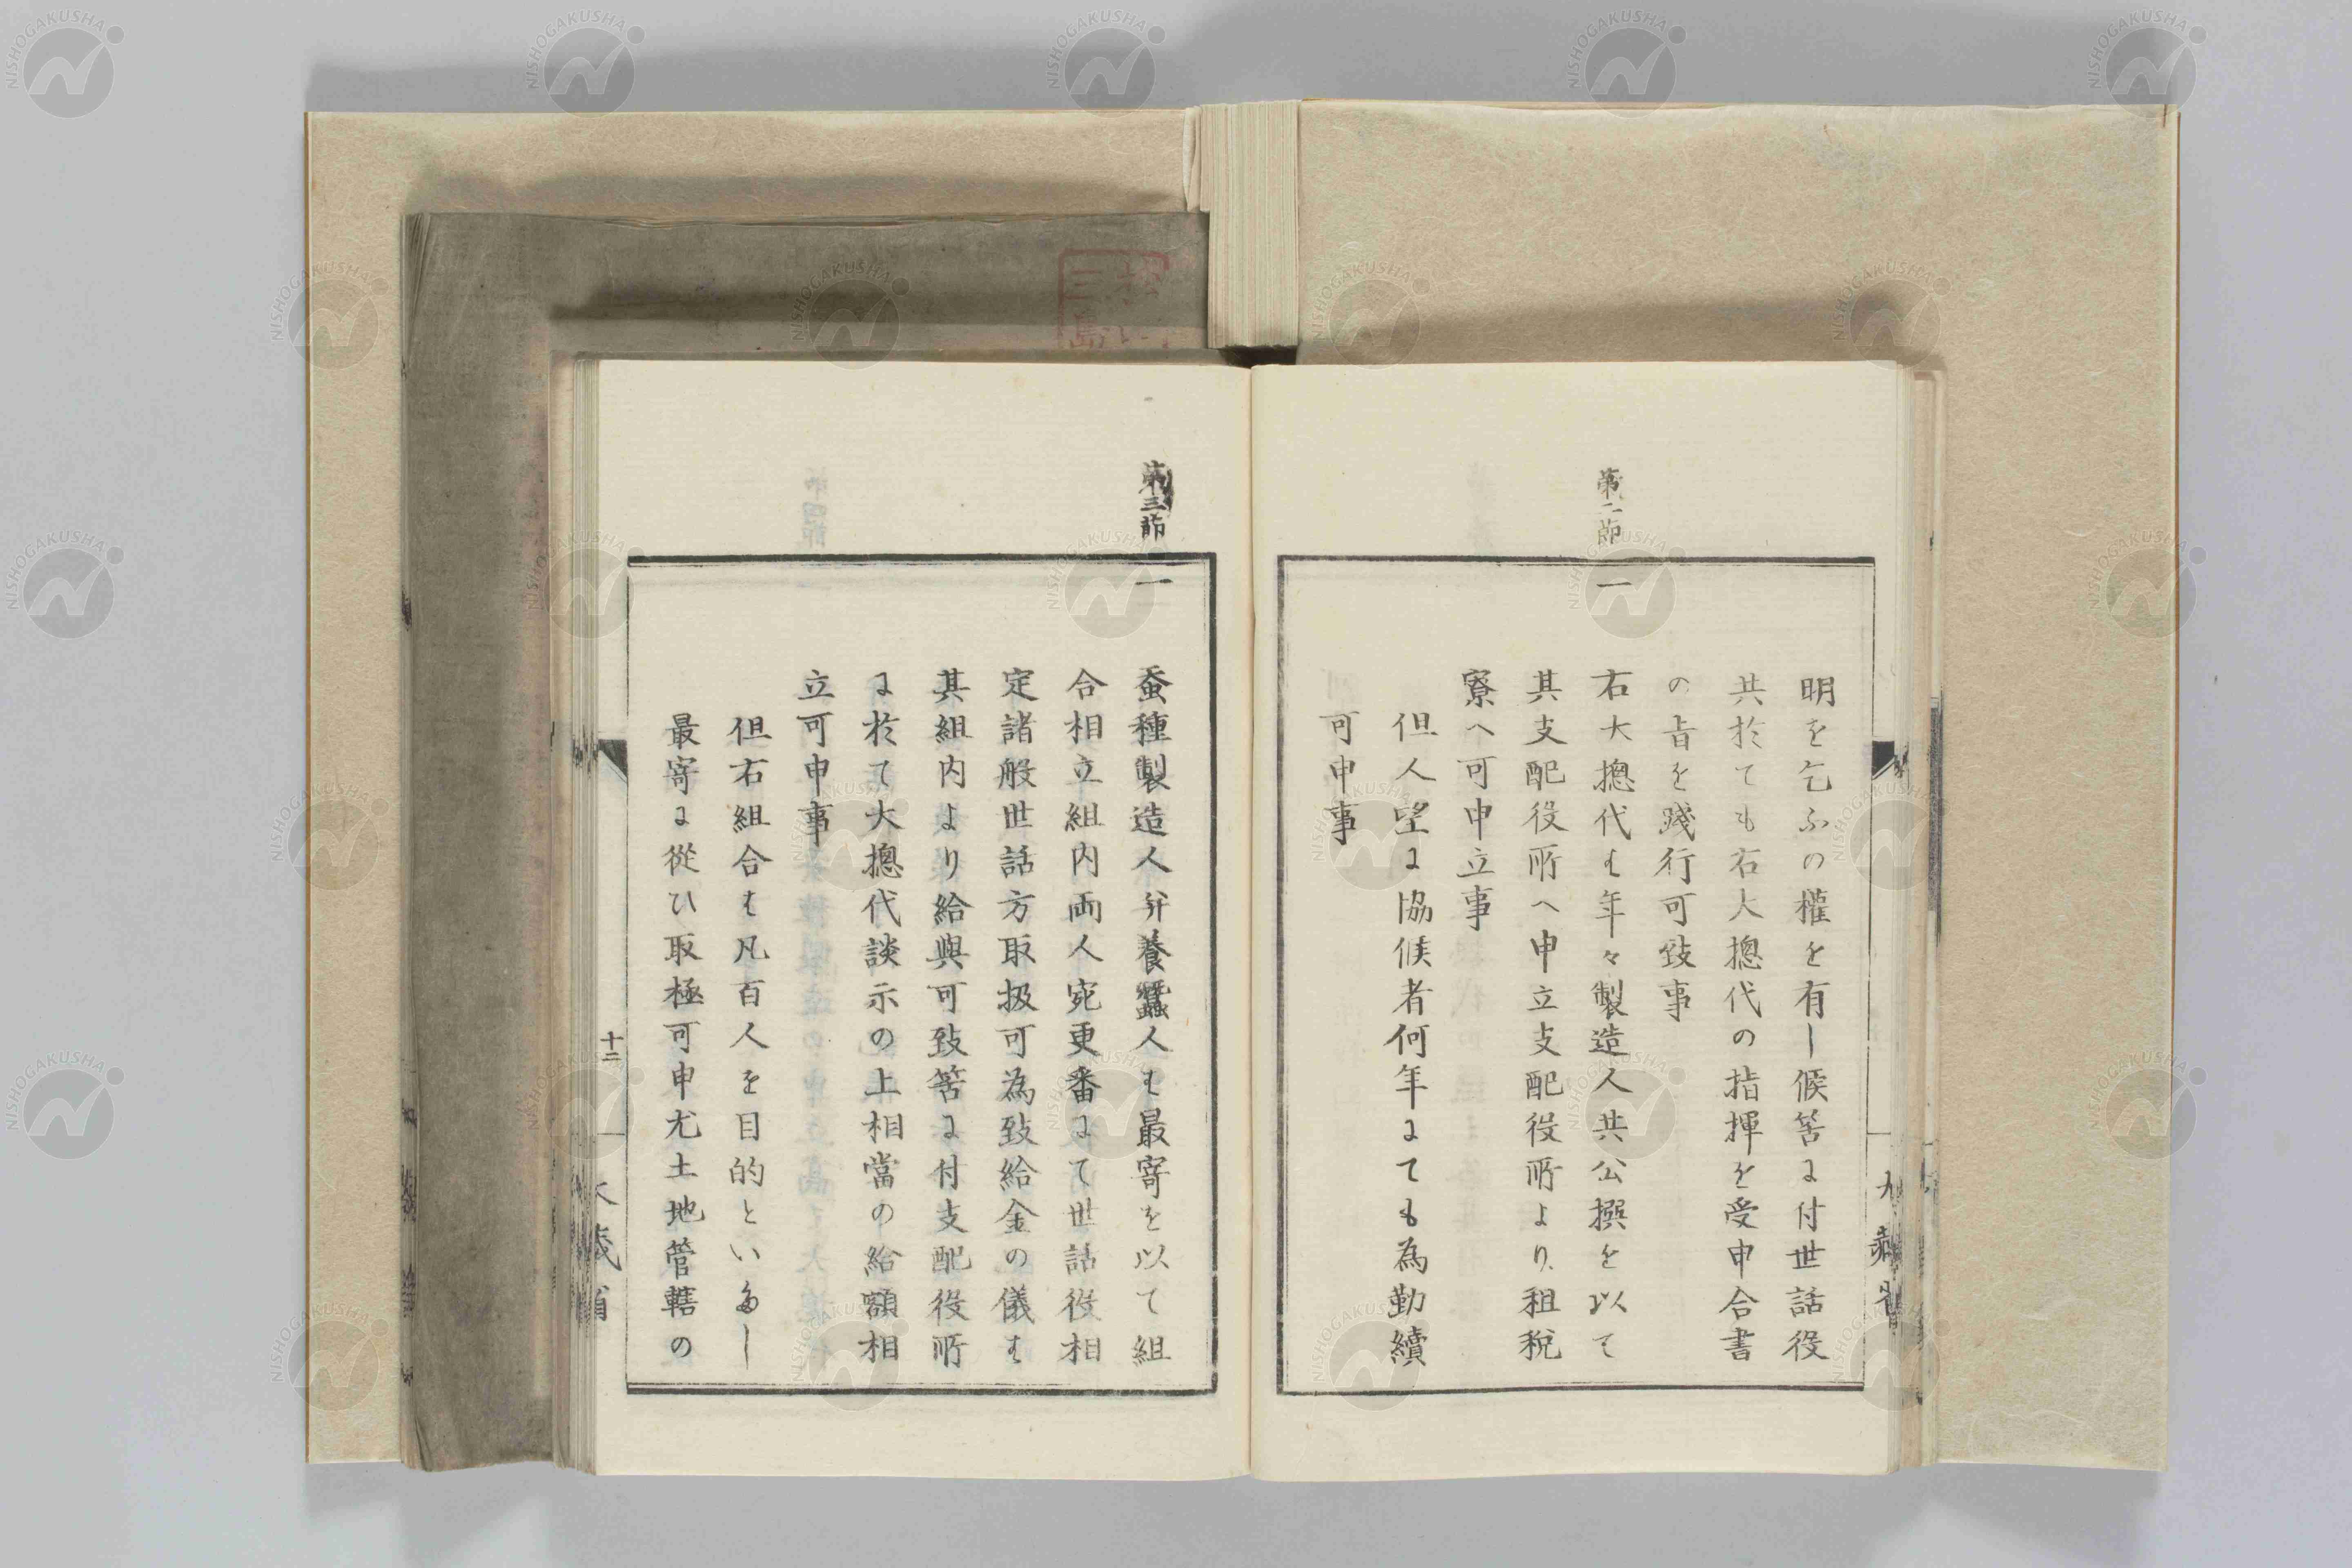 明を乞ふの權を有し候筈に付世話役
共於ても右大摠代の指揮を受申合書
の旨を踐行可致事
第二節
一
右大摠代は年々製造人共公撰を以て
其支配役所へ申立支配役所より租税
寮へ可申立事
但人望に協候者何年にても為勤續
可申事
第三節
一
蚕種製造人并養蠶人は最寄を以て組
合相立組内両人宛更番にて世話役相
定諸般世話方取扱可為致給金の儀は
其組内より給與可致筈に付支配役所
に於て大摠代談示の上相當の給額相
立可申事
但右組合は凡百人を目的といたし
最寄に從ひ取極可申尤土地管轄の
十二
大藏省